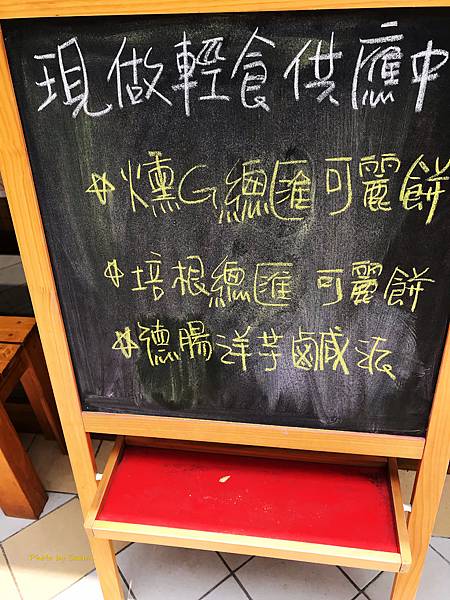 現做輕食供應中
燻G總匯可麗餅
培根總匯 可麗餅
德腸洋芋鹹派